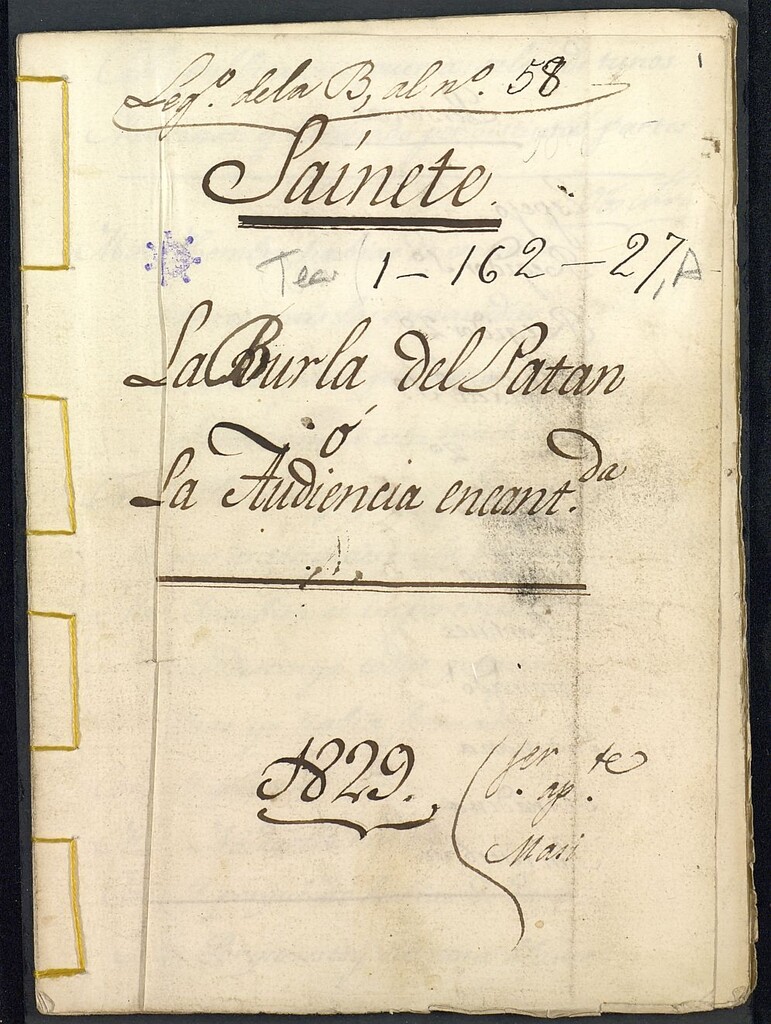 Leg.º de la B, al nº. 58
1
Saínete.
Tea 1-162-27, A
La Burla del Patan
ó
La Audiencia encant.da
1829.
ap.te
Mari